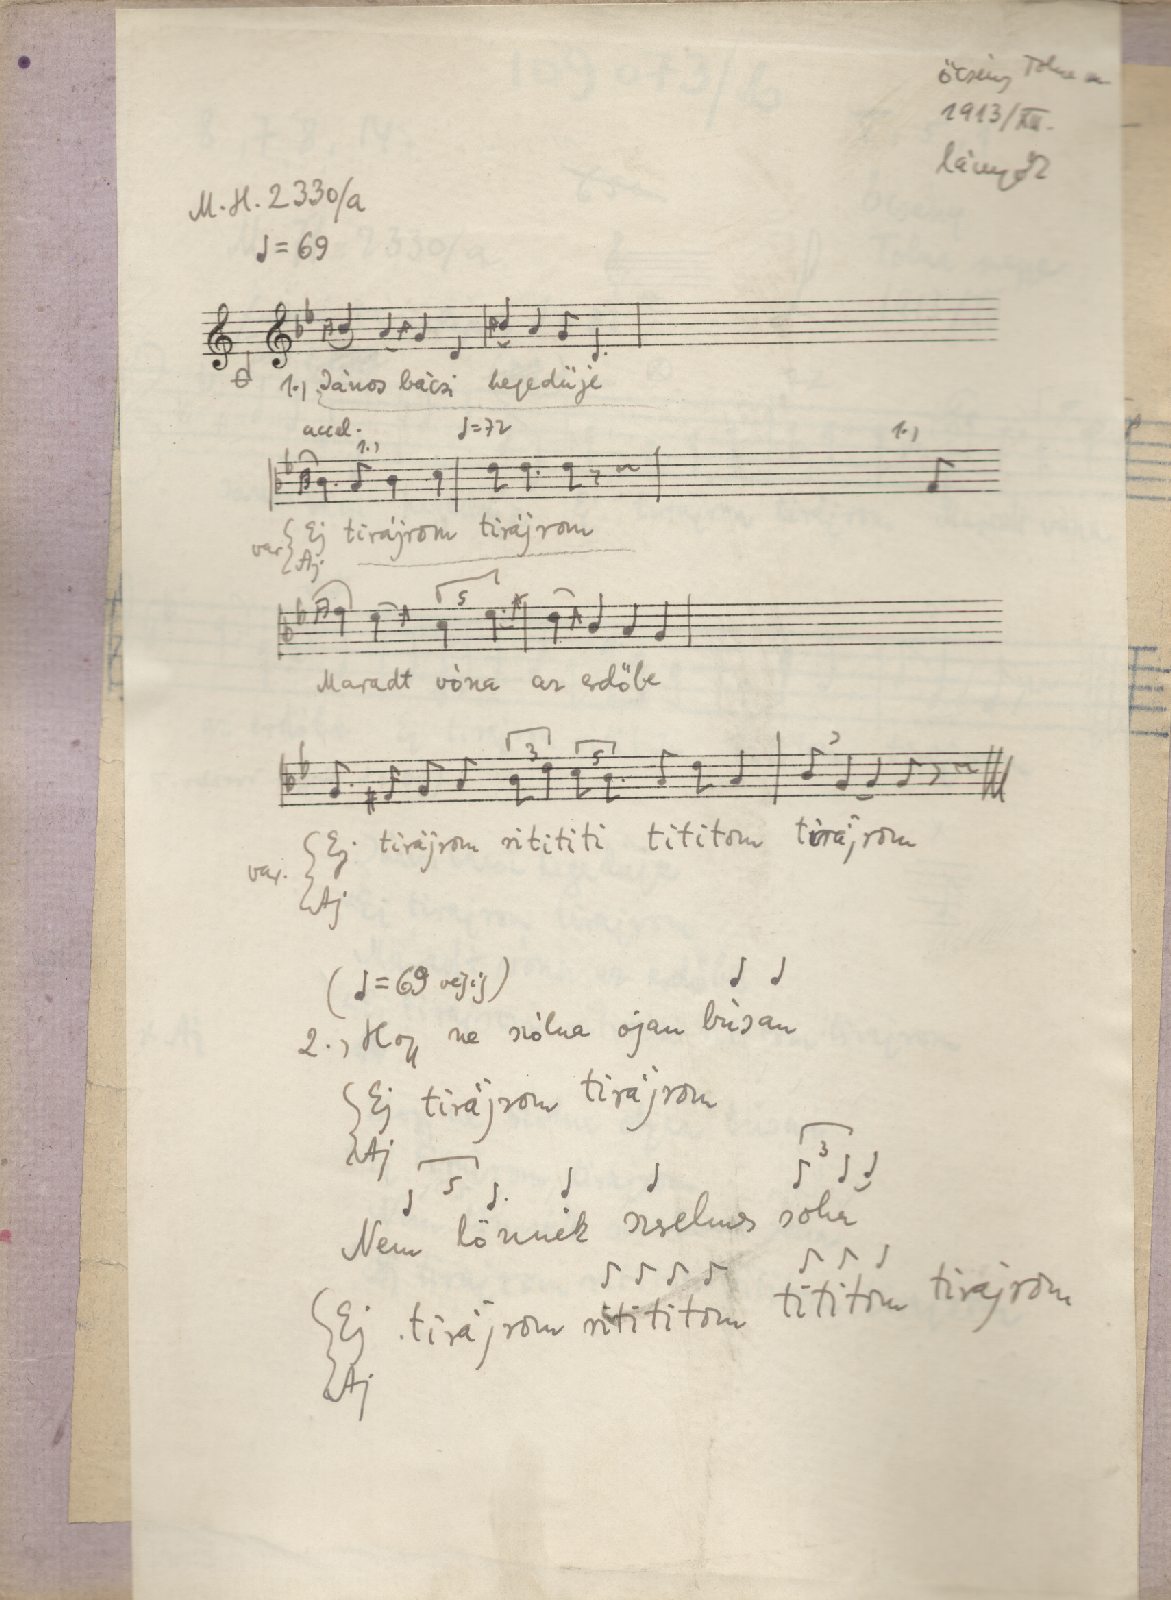 Őcsény Tolna m
1913/XII.
M.H. 2330/a
♩=69
1., János bácsi hegedüje
accel. ♩=72
1.,
1.,
var. Ej tirájrom tirájrom
Aj
5
Maradt vóna az erdőbe
3 5
var. Ej tirájrom ritititi tititom tirájrom
Aj
(♩=69 végig)
2., Hogy ne szólna ojan búsan
Ej tirájrom tirájrom
Aj
5 3
Nem lönnék szerelmes soha
Ej tirájrom ritititom tititom tirájrom
Aj